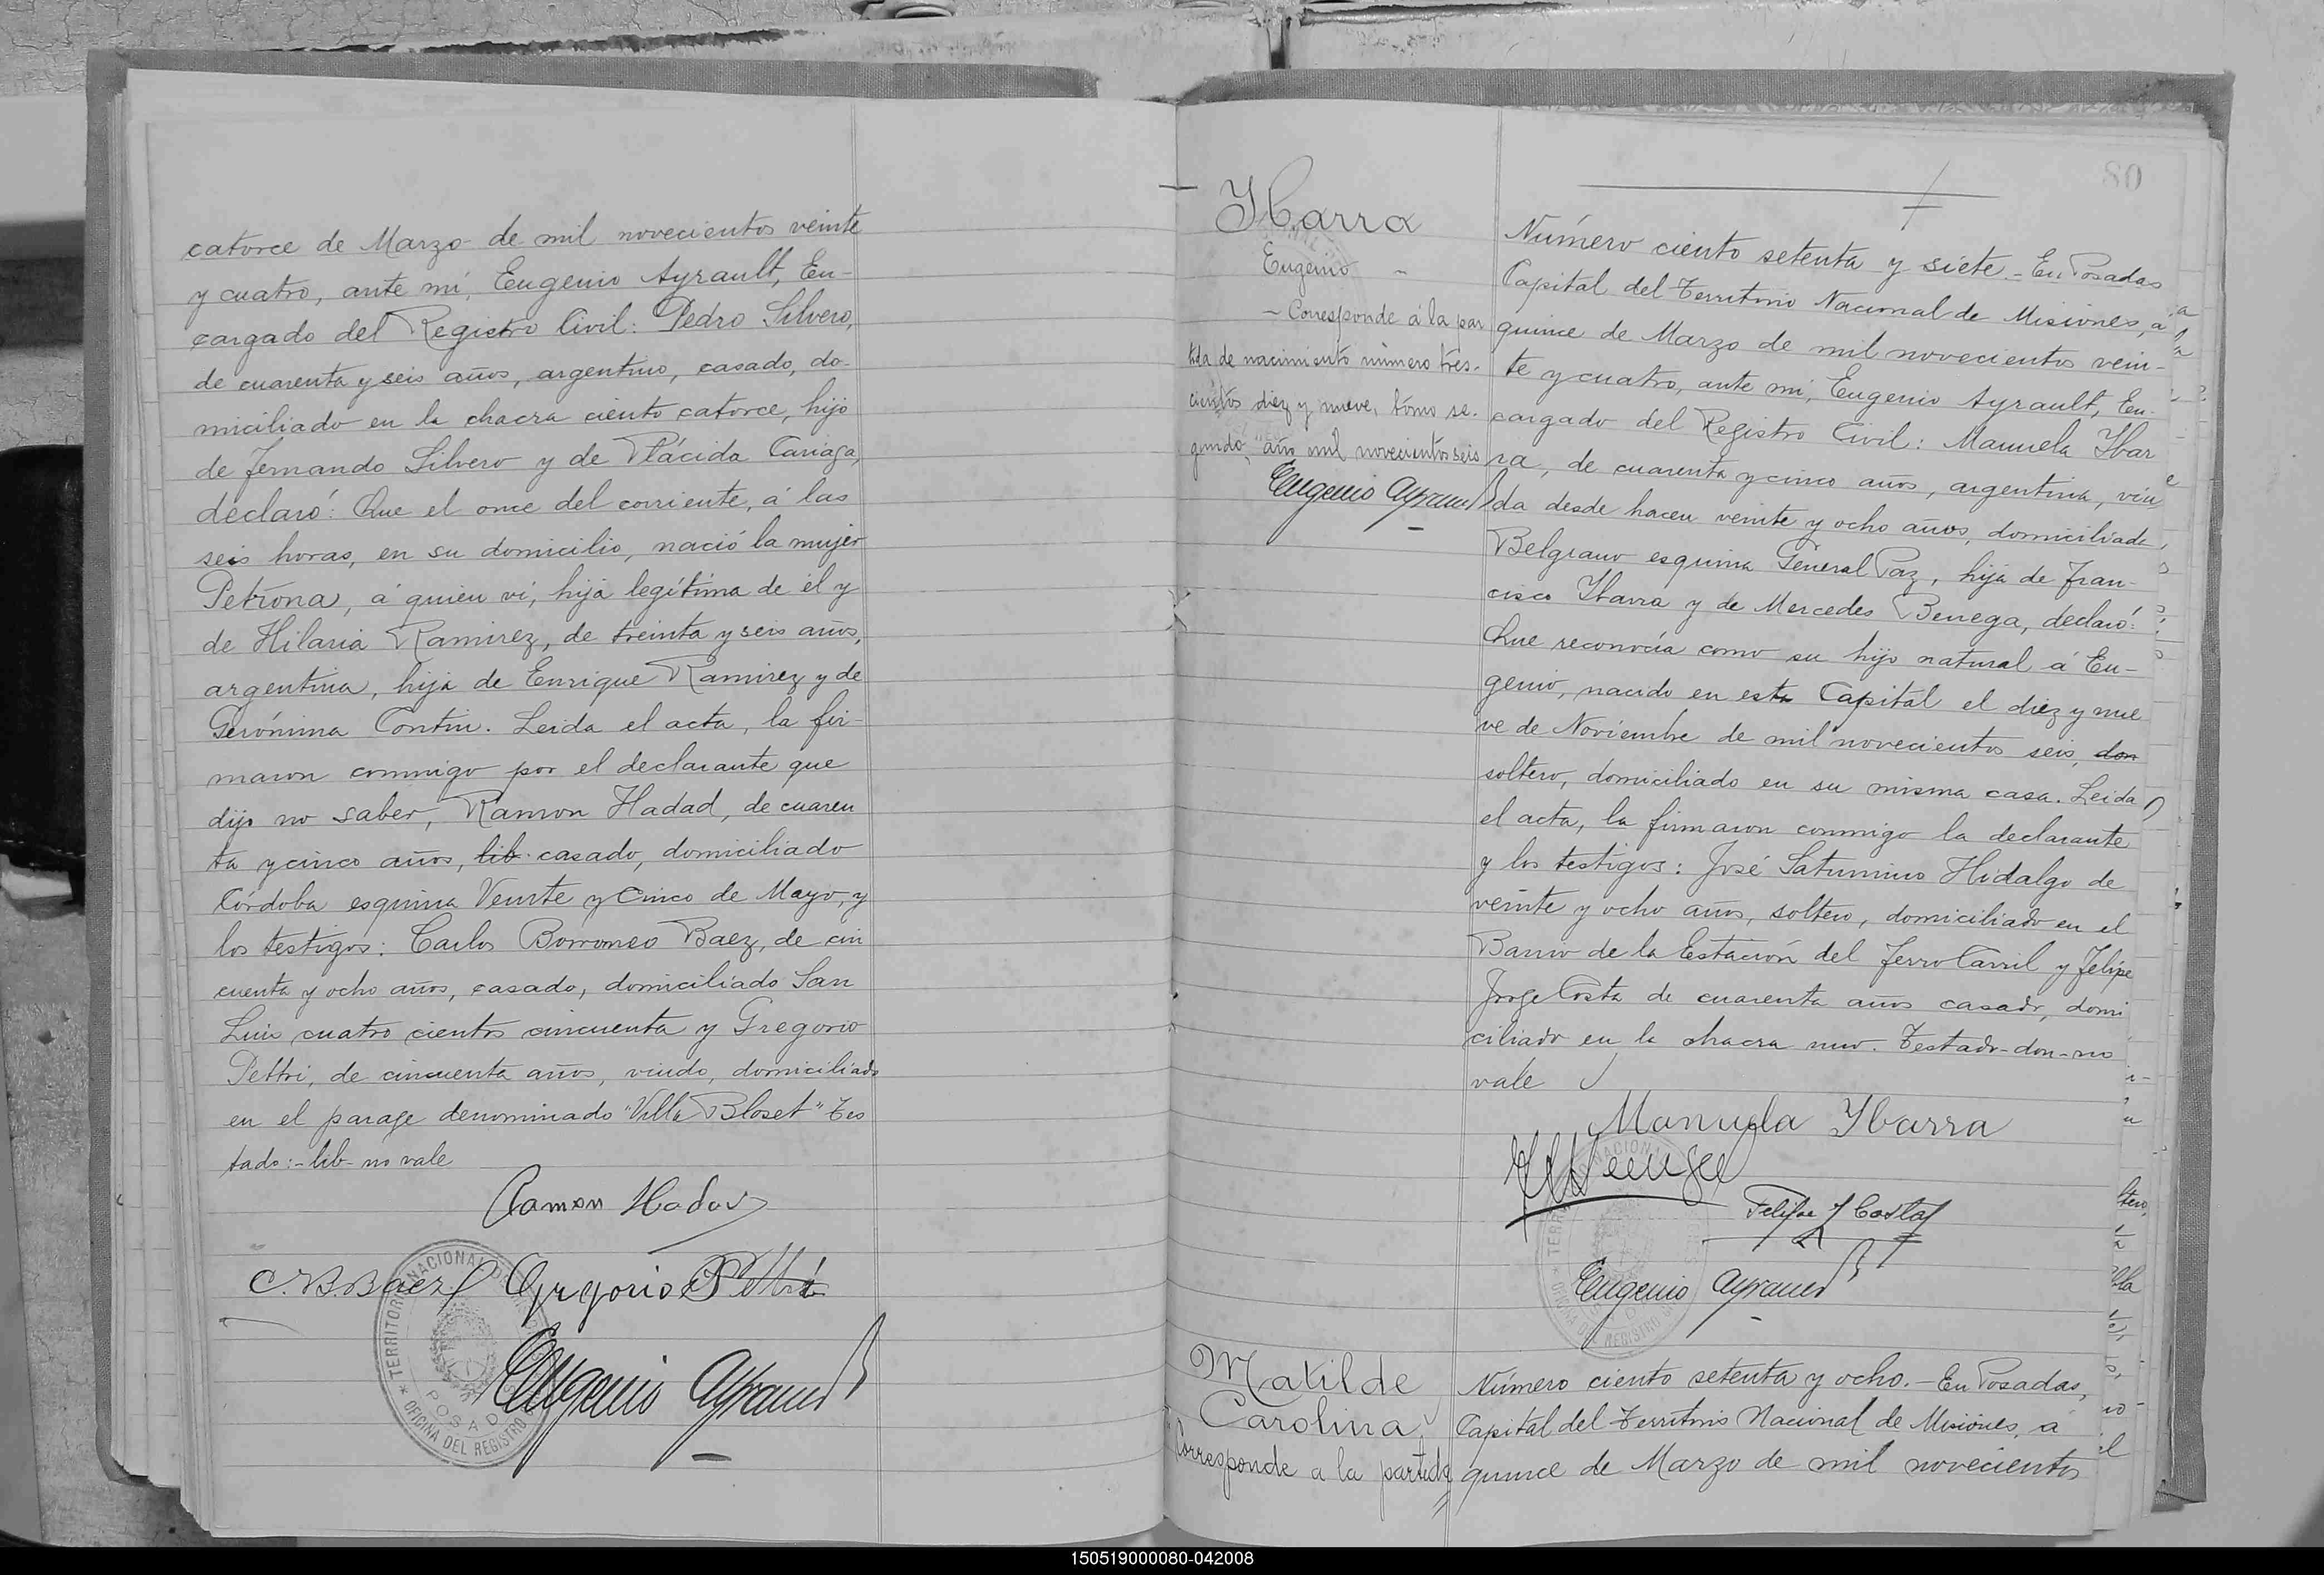 catorce de Marzo de mil novecientos veinte
y cuatro, ante mí, Eugenio Ayrault, En-
cargado del Registro Civil: Pedro Silvero,
de cuarenta y seis años, argentino, casado, do-
miciliado en la chacra ciento catorce, hijo
de Fernando Silvero y de Plácida Cariaga,
declaró: Que el once del corriente, á las
seis horas, en su domicilio, nació la mujer
Petrona, á quien ví, hija legítima de él y
de Hilaria Ramirez, de treinta y seis años,
argentina, hija de Enrique Ramirez y de
Gerónima Contin. Leida el acta, la fir-
maron conmigo por el declarante que
dijo no saber, Ramon Hadad, de cuaren
ta y cinco años, lib casado, domiciliado
Córdoba esquina Veinte y Cinco de Mayo, y
los testigos: Carlos Borromeo Baez, de cin
cuenta y ocho años, casado, domiciliado San
Luis cuatro cientos cincuenta y Gregorio
Pettri, de cincuenta años, viudo, domiciliado
en el parage denominado "Villa Bloset" Tes
tado:-lib-no vale
Ramon Hadad
C. B. Baez Gregorio Pettri
Eugenio Ayrault
TERRITORIO NACIONAL DE
POSADAS
OFICINA DEL REGISTRO
80
Ybarra
Eugenio
- Corresponde á la par
tida de nacimiento número tres-
cientos diez y nueve, tomo se-
gundo, año mil novecientos seis
Eugenio Ayrault
Número ciento setenta y siete.- En Posadas
Capital del Territorio Nacional de Misiones, a
quince de Marzo de mil novecientos vein-
te y cuatro, ante mi, Eugenio Ayrault, En-
cargado del Registro Civil: Manuela Ybar
ra, de cuarenta y cinco años, argentina, viu
da desde hacen veinte y ocho años, domiciliada
Belgrano esquina General Paz, hija de Fran-
cisco Ybarra y de Mercedes Benega, declaró:
Que reconocía como su hijo natural á Eu-
genio, nacido en esta Capital el diez y nue
ve de Noviembre de mil novecientos seis, don
soltero, domiciliado en su misma casa. Leida
el acta, la firmaron conmigo la declarante
y los testigos: José Saturnino Hidalgo de
veinte y ocho años, soltero, domiciliado en el
Barrio de la Estación del Ferro Carril y Felipe
Jorge Costa de cuarenta años casado, domi
ciliado en la chacra uno. Testado-don-no
vale
Manuela Ybarra
Felipe J Costa
Eugenio Ayrault
Matilde
Carolina
Corresponde a la partida
Número ciento setenta y ocho.- En Posadas,
Capital del Territorio Nacional de Misiones, a
quince de Marzo de mil novecientos
150519000080-042008